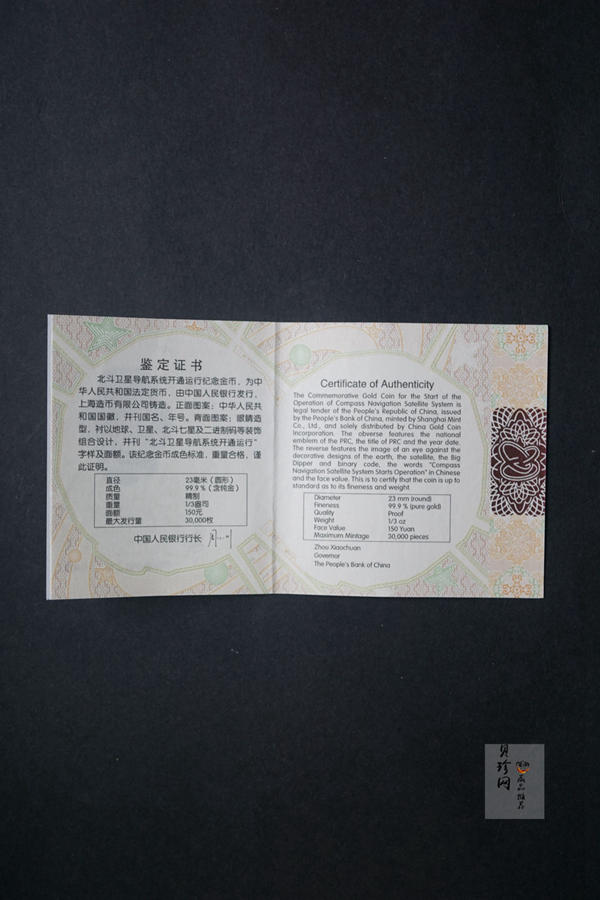 鉴定证书
北斗卫星导航系统开通运行纪念金币，为中
华人民共和国法定货币，由中国人民银行发行，
上海造币有限公司铸造。正面图案：中华人民共
和国国徽，并刊国名、年号。背面图案：眼睛造
型，衬以地球、卫星、北斗七星及二进制码等装饰
组合设计，并刊“北斗卫星导航系统开通运行”
字样及面额。该纪念金币成色标准，重量合格，谨
此证明。
直径 23毫米（圆形）
成色 99.9％（含纯金）
质量 精制
重量 1/3盎司
面额 150元
最大发行量 30,000枚
中国人民银行行长
Certificate of Authenticity
The Commemorative Gold Coin for the Start of the
Operation of Compass Navigation Satellite System is
legal tender of the People's Republic of China, issued
by the People's Bank of China, minted by Shanghai Mint
Co., Ltd., and solely distributed by China Gold Coin
Incorporation. The obverse features the national
emblem of the PRC, the title of PRC and the year date.
The reverse features the image of an eye against the
decorative designs of the earth, the satellite, the Big
Dipper and binary code, the words "Compass
Navigation Satellite System Starts Operation" in Chinese
and the face value. This is to certify that the coin is up to
standard as to its fineness and weight.
Diameter 23 mm (round)
Fineness 99.9 % (pure gold)
Quality Proof
Weight 1/3 oz
Face Value 150 Yuan
Maximum Mintage 30,000 pieces
Zhou Xiaochuan
Governor
The People's Bank of China
贝珍网
藏品推荐